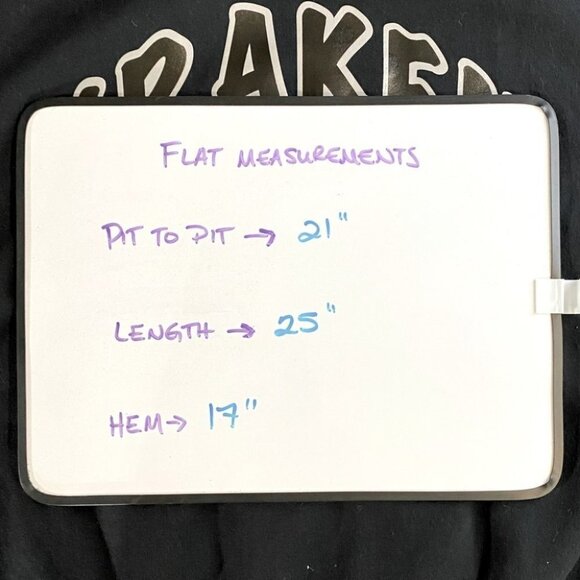 FLAT MEASUREMENTS
PIT TO PIT → 21"
LENGTH → 25"
HEM → 17"